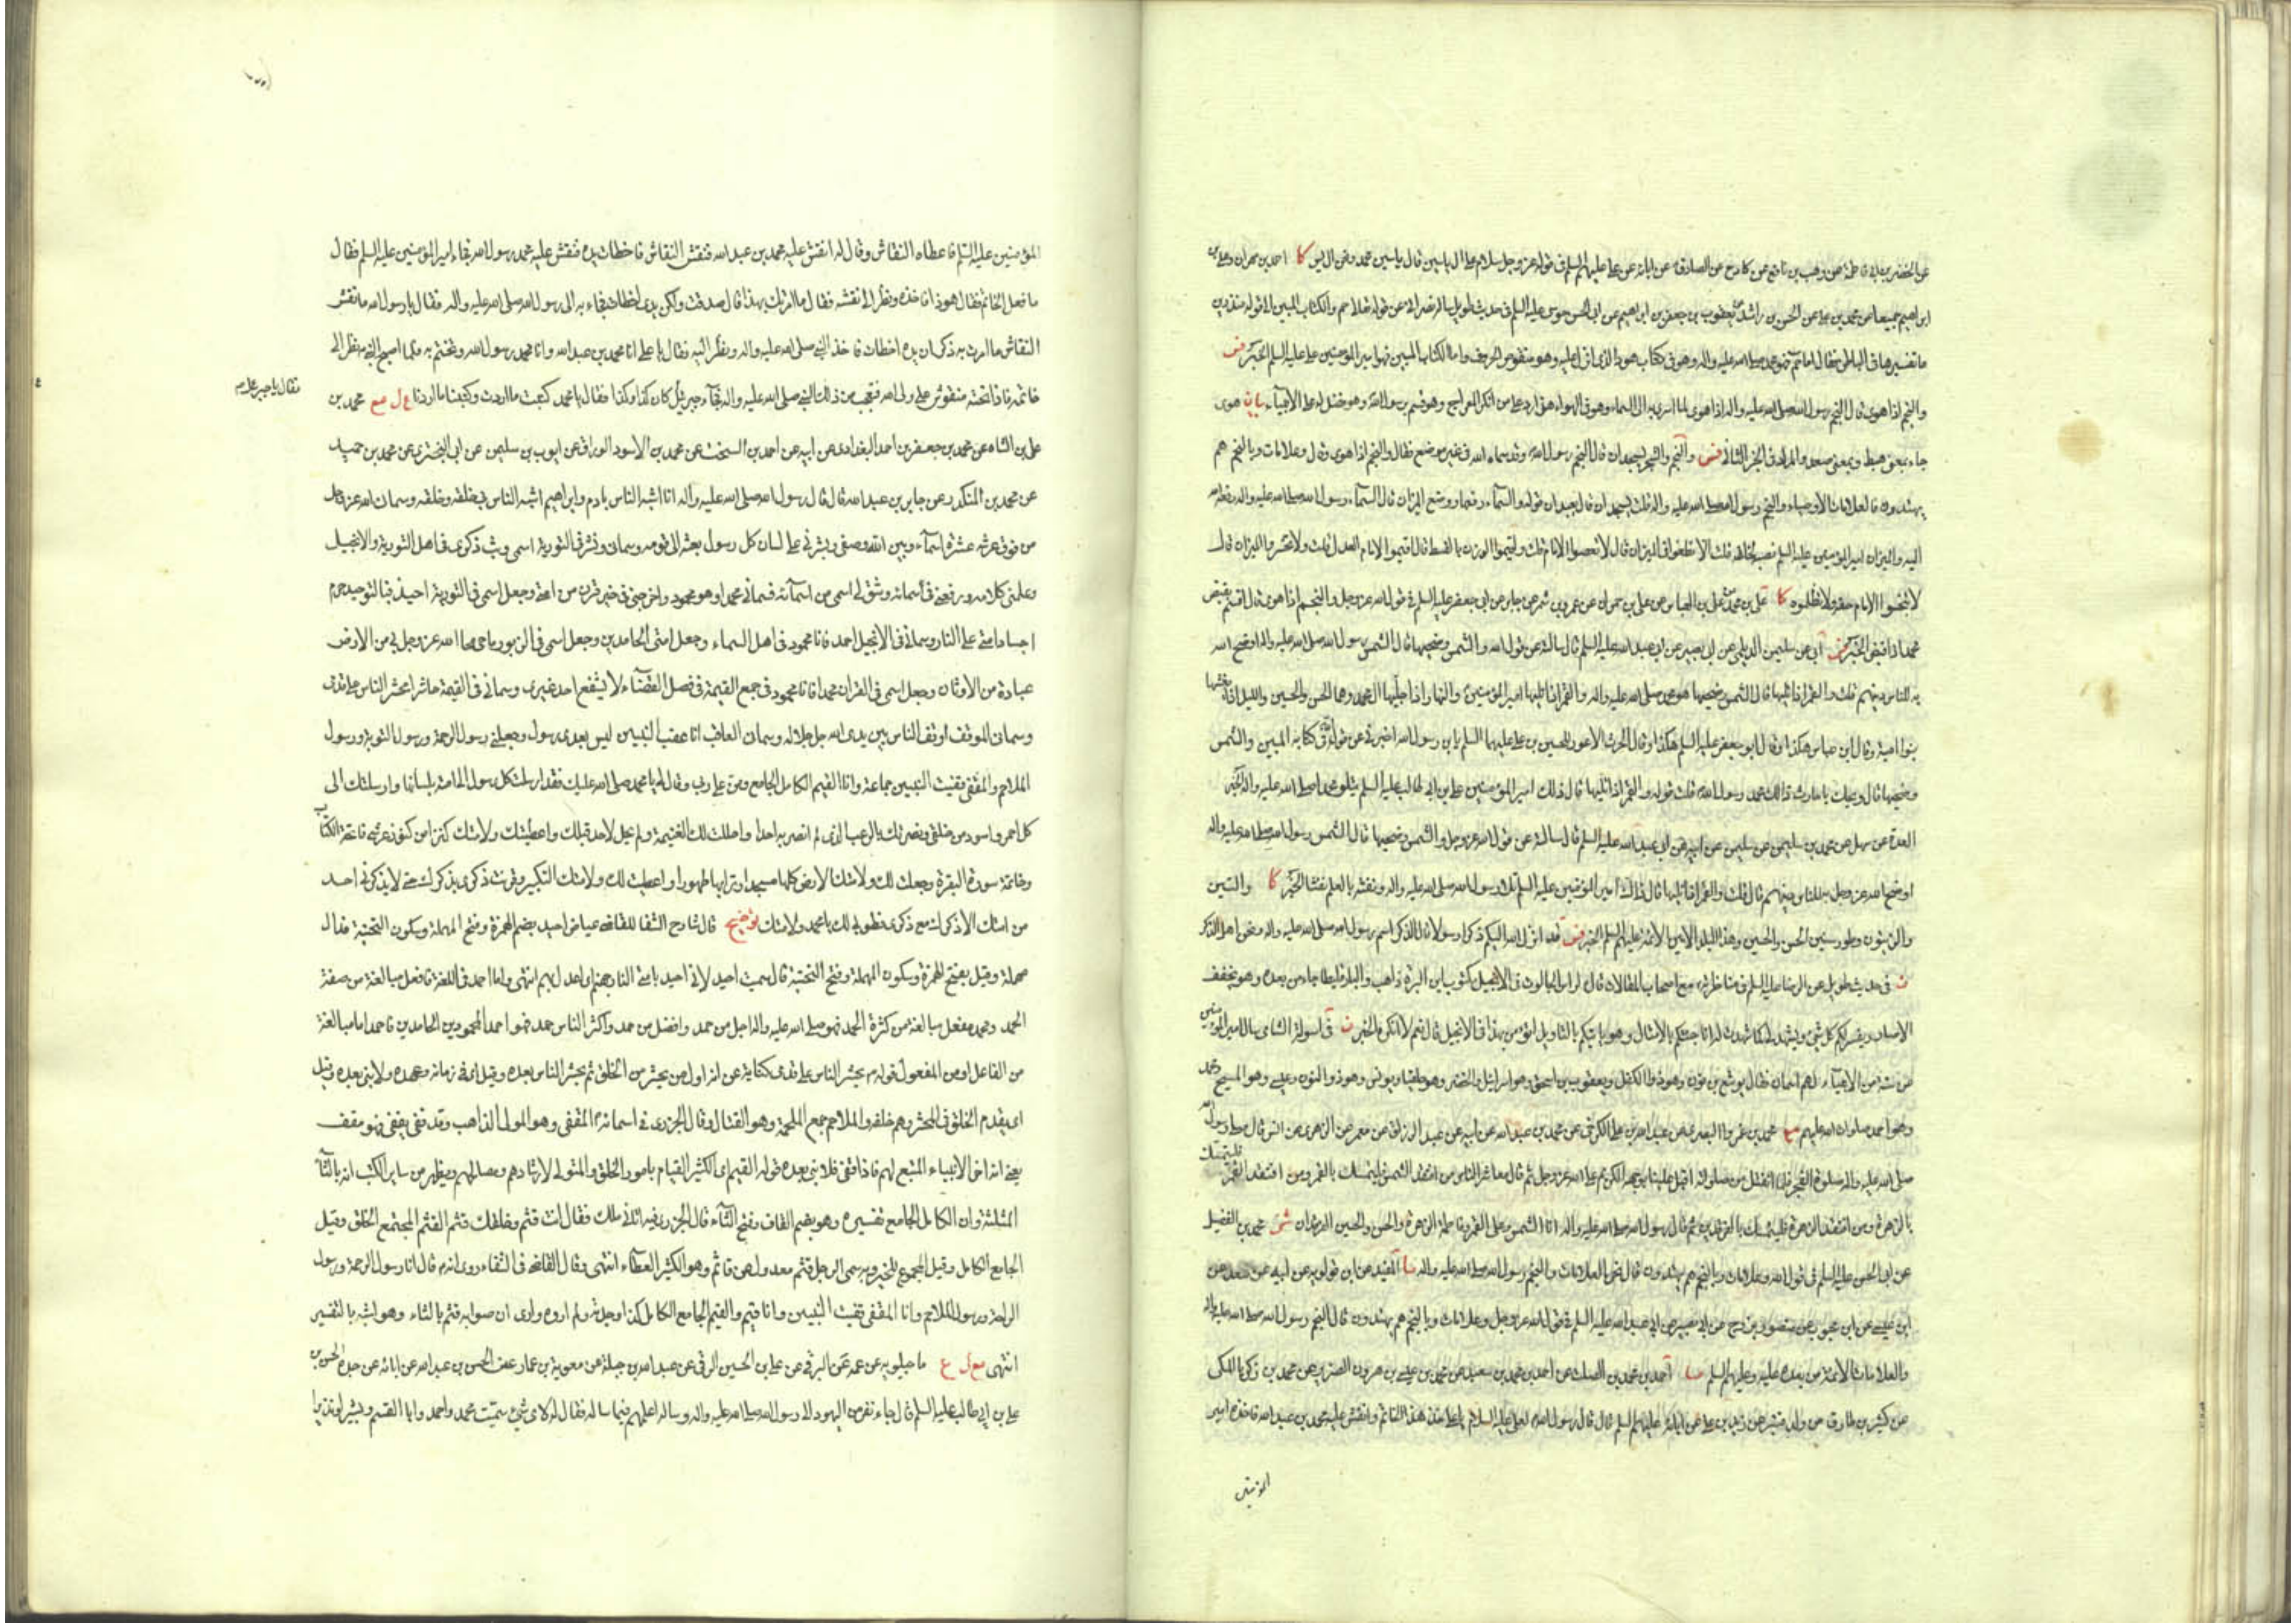 عن الخضر بن ابي فاطمة عن وهب بن نافع عن كادح عن الصادق عن ابائه عن علي عليهم السلم في قوله عز وجل سلام على ال ياسين قال ياسين محمد ونحن ال يس كا احمد بن مهران وعلي بن
ابراهيم جميعا عن محمد بن علي عن الحسن بن راشد عن يعقوب بن جعفر بن ابراهيم عن ابي الحسن موسى عليه السلم في حديث طويل سأله نصراني عن قوله تعالى حم والكتاب المبين الى قوله منذرين
ما تفسيرها في الباطن فقال اما حم فهو محمد صلى الله عليه واله وهو في كتاب هود الذي انزل عليه وهو منقوص الحروف واما الكتاب المبين فهو امير المؤمنين علي عليه السلم الخبر فس
والنجم اذا هوى قال النجم رسول الله صلى الله عليه واله اذا هوى لما اسري به الى السماء وهو في الهواء هذا رد على من انكر المعراج وهو قسم برسول الله وهو فضل له على الانبياء بيان هوى
جاء بمعنى هبط وبمعنى صعد والمراد في الخبر الثاني فس والنجم والشجر يسجدان قال النجم رسول الله وقد سماه الله في غير موضع فقال والنجم اذا هوى وقال وعلامات وبالنجم هم
يهتدون فالعلامات الاوصياء والنجم رسول الله صلى الله عليه واله قلت يسجدان قال يعبدان قوله والسماء رفعها ووضع الميزان قال السماء رسول الله صلى الله عليه واله رفعه الله
اليه والميزان امير المؤمنين عليه السلم نصبه لخلقه قلت الا تطغوا في الميزان قال لا تعصوا الامام قلت واقيموا الوزن بالقسط قال اقيموا الامام العدل قلت ولا تخسروا الميزان قال
لا تبخسوا الامام حقه ولا تظلموه كا علي بن محمد عن علي بن العباس عن علي بن حماد عن عمرو بن شمر عن جابر عن ابي جعفر عليه السلم في قول الله عز وجل والنجم اذا هوى قال اقسم بقبض
محمد اذا قبض الخبر فس ابي عن سليمن الديلمي عن ابي بصير عن ابي عبد الله عليه السلم قال سالته عن قول الله والشمس وضحيها قال الشمس رسول الله صلى الله عليه واله اوضح الله
به للناس دينهم قلت والقمر اذا تليها قال
بنو امية وقال ابن عباس هكذا وقال ابو جعفر عليه السلم هكذا وقال الحرث الاعور للحسين بن علي عليهما السلم يا بن رسول الله اخبرني عن قول الله في كتابه المبين والشمس
وضحيها قال ويحك يا حارث ذلك محمد رسول الله قلت قوله والقمر اذا تليها قال ذلك امير المؤمنين علي بن ابي طالب عليه السلم يتلو محمدا صلى الله عليه واله الخبر
العدة عن سهل عن محمد بن سليمن عن ابيه عن ابي عبد الله عليه السلم قال سالته عن قول الله عز وجل والشمس وضحيها قال الشمس رسول الله صلى الله عليه واله
اوضح الله عز وجل به للناس دينهم قال قلت والقمر اذا تليها قال ذلك امير المؤمنين عليه السلم تلا رسول الله صلى الله عليه واله ونفثه بالعلم نفثا الخبر كا والتين
والزيتون وطور سينين الحسن والحسين وهذا البلد الامين الائمة عليهم السلم الخبر فس قد انزل الله اليكم ذكرا رسولا قال الذكر اسم رسول الله صلى الله عليه واله ونحن اهل الذكر
ن في حديث طويل عن الرضا عليه السلم في مناظرته مع اصحاب المقالات قال لراس الجالوت في الانجيل مكتوب ابن البرة ذاهب والبارقليطا جاء من بعده وهو يخفف
الاصار ويفسر لكم كل شيء ويشهد لي كما شهدت له انا جئتكم بالامثال وهو ياتيكم بالتاويل اتؤمن بهذا في الانجيل قال نعم لا انكره الخبر ن في اسولة الشامي سال امير المؤمنين
عن ستة من الانبياء لهم اسمان فقال يوشع بن نون وهو ذو الكفل ويعقوب بن اسحق وهو اسرائيل والخضر وهو حلقيا ويونس وهو ذو النون وعيسى وهو المسيح ومحمد
وهو احمد صلوات الله عليهم مع محمد بن عمرو البصري عن عبد الله بن علي الكرخي عن محمد بن عبد الله عن ابيه عن عبد الرزاق عن معمر عن الزهري عن انس قال صلى رسول الله
صلى الله عليه واله صلوة الفجر فلما انفتل من صلوته اقبل علينا بوجهه الكريم على الله عز وجل ثم قال معاشر الناس من افتقد الشمس فليتمسك بالقمر ومن افتقد القمر فليتمسك
بالزهرة ومن افتقد الزهرة فليتمسك بالفرقدين ثم قال رسول الله صلى الله عليه واله انا الشمس وعلي القمر وفاطمة الزهرة والحسن والحسين الفرقدان شى محمد بن الفضيل
عن ابي الحسن عليه السلم في قول الله وعلامات وبالنجم هم يهتدون قال نحن العلامات والنجم رسول الله صلى الله عليه واله ما المفيد عن ابن قولويه عن ابيه عن سعد عن
ابن عيسى عن ابن محبوب عن منصور بزرج عن ابي بصير عن ابي عبد الله عليه السلم في قول الله عز وجل وعلامات وبالنجم هم يهتدون قال النجم رسول الله صلى الله عليه واله
والعلامات الائمة من بعده عليه وعليهم السلم ما احمد بن محمد بن الصلت عن احمد بن محمد بن سعيد عن محمد بن عيسى بن هرون الضرير عن محمد بن زكريا المكي
عن كثير بن طارق من ولد قنبر عن زيد بن علي عن ابائه عليهم السلم قال قال رسول الله لعلي عليه السلام يا علي خذ هذا الخاتم وانقش عليه محمد بن عبد الله فاخذه امير
المؤمنين
المؤمنين عليه السلم فاعطاه النقاش وقال له انقش عليه محمد بن عبد الله فنقش النقاش فاخطات يده فنقش عليه محمد رسول الله فجاء امير المؤمنين عليه السلم فقال
ما فعل الخاتم فقال هو ذا فاخذه ونظر الى نقشه فقال ما امرتك بهذا قال صدقت ولكن يدي اخطات فجاء به الى رسول الله صلى الله عليه واله فقال يا رسول الله ما نقش
النقاش ما امرت به ذكر ان يده اخطات فاخذ النبي صلى الله عليه واله ونظر اليه فقال يا علي انا محمد بن عبد الله وانا محمد رسول الله وتختم به فلما اصبح النبي نظر الى
خاتمه فاذا تحته منقوش علي ولي الله فتعجب من ذلك النبي صلى الله عليه واله فجاء جبرئيل كان كذا وكذا فقال يا محمد كتبت ما اردت وكتبنا ما اردنا ع ل مع محمد بن
فقال يا جبرئيل
علي بن الشاه عن محمد بن جعفر بن احمد البغدادي عن ابيه عن احمد بن السخت عن محمد بن الاسود الوراق عن ايوب بن سليمن عن ابي البختري عن محمد بن حميد
عن محمد بن المنكدر عن جابر بن عبد الله قال قال رسول الله صلى الله عليه واله انا اشبه الناس بادم وابراهيم اشبه الناس بي خلقه وخلقه وسماني الله عز وجل
من فوق عرشه عشرة اسماء وبين الله وصفي وبشرني على لسان كل رسول بعثه الى قومه وسماني ونشر في التورية اسمي وبث ذكري في اهل التورية والانجيل
وعلمني كلامه ورفعني في سمائه وشق لي اسمي من اسمائه فسماني محمدا وهو محمود واخرجني في خير قرن من امتي وجعل اسمي في التورية احيد فبالتوحيد حرم
اجساد امتي على النار وسماني في الانجيل احمد فانا محمود في اهل السماء وجعل امتي الحامدين وجعل اسمي في الزبور ماحي محا الله عز وجل بي من الارض
عبادة الاوثان وجعل اسمي في القران محمدا فانا محمود في جمع القيمة في فصل القضاء لا يشفع احد غيري وسماني في القيمة حاشرا يحشر الناس على قدمي
وسماني الموقف اوقف الناس بين يدي الله جل جلاله وسماني العاقب انا عقب النبيين ليس بعدي رسول وجعلني رسول الرحمة ورسول التوبة ورسول
الملاحم والمقفي قفيت النبيين جماعة وانا القيم الكامل الجامع ومن علي ربي وقال لي يا محمد صلى الله عليك فقد ارسلت كل رسول الى امته بلسانها وارسلتك الى
كل احمر واسود من خلقي ونصرتك بالرعب الذي لم انصر به احدا واحللت لك الغنيمة ولم تحل لاحد قبلك واعطيتك ولامتك كنزا من كنوز عرشي فاتحة الكتاب
وخاتمة سورة البقرة وجعلت لك ولامتك الارض كلها مسجدا وترابها طهورا واعطيت لك ولامتك التكبير وقرنت ذكري بذكرك حتى لا يذكرني احد
من امتك الا ذكرك مع ذكري فطوبى لك يا محمد ولامتك توضيح قال شارح الشفا للقاضي عياض احيد بضم الهمزة وفتح المهملة وسكون التحتية فدال
مهملة وقيل بفتح الهمزة وسكون المهملة وفتح التحتية قال سميت احيد لاني احيد بامتي النار جهنم اي اعدل بهم انتهى واما احمد في اللغة فافعل مبالغة من صفة
الحمد ومحمد مفعل مبالغة من كثرة الحمد فهو صلى الله عليه واله اجل من حمد وافضل من حمد واكثر الناس حمد فهو احمد المحمودين الحامدين فاحمد اما مبالغة
من الفاعل او من المفعول قوله يحشر الناس على قدمي كناية عن انه اول من يحشر من الخلق ثم يحشر الناس بعده وقيل اي في زمانه وعهده ولا نبي بعده وقيل
اي يقدم الخلق في المحشر وهم خلفه والملاحم جمع الملحمة وهو القتال وقال الجزري في اسمائه المقفي وهو المولي الذاهب وقد قفى يقفي فهو مقف
يعني انه اخر الانبياء المتبع لهم فاذا قفى فلا نبي بعده قوله القيم اي الكثير القيام بامور الخلق والمتولي لارشادهم ومصالحهم ويظهر من ساير الكتب انه بالثاء
المثلثة وان الكامل الجامع تفسيره وهو بضم القاف وفتح الثاء قال الجزري فيه اتاني ملك فقال انت قثم وخلقك قثم القثم المجتمع الخلق وقيل
الجامع الكامل وقيل الجموع للخير وبه سمي الرجل قثم معدول عن قاثم وهو الكثير العطاء انتهى وقال القاضي في الشفاء روى انه قال انا رسول الرحمة ورسول
الراحة ورسول الملاحم وانا المقفي قفيت النبيين وانا قيم والقيم الجامع الكامل كذا وجدته ولم اروه وارى ان صوابه قثم بالثاء وهو اشبه بالتفسير
انتهى مع ل ع ماجيلويه عن عمه عن البرقي عن علي بن الحسين الرقي عن عبد الله بن جبلة عن معوية بن عمار عن الحسن بن عبد الله عن ابائه عن جده الحسن بن
علي بن ابي طالب عليه السلم قال جاء نفر من اليهود الى رسول الله صلى الله عليه واله وساله اعلمهم فيما ساله فقال له لاي شيء سميت محمد واحمد وابا القسم وبشيرا ونذيرا